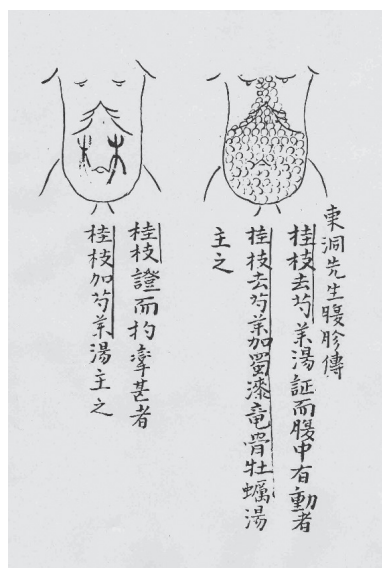 東洞先生腹胗傳
桂枝去芍藥湯証而腹中有動者
桂枝去芍藥加蜀漆竜骨牡蠣湯
主之
桂枝證而拘攣甚者
桂枝加芍藥湯主之